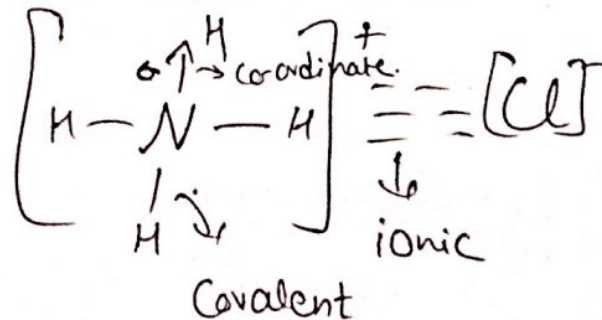 H
σ ↑ → co-ordinate.
[H — N — H]⁺ ≡ [Cl]⁻
H
ionic
Covalent